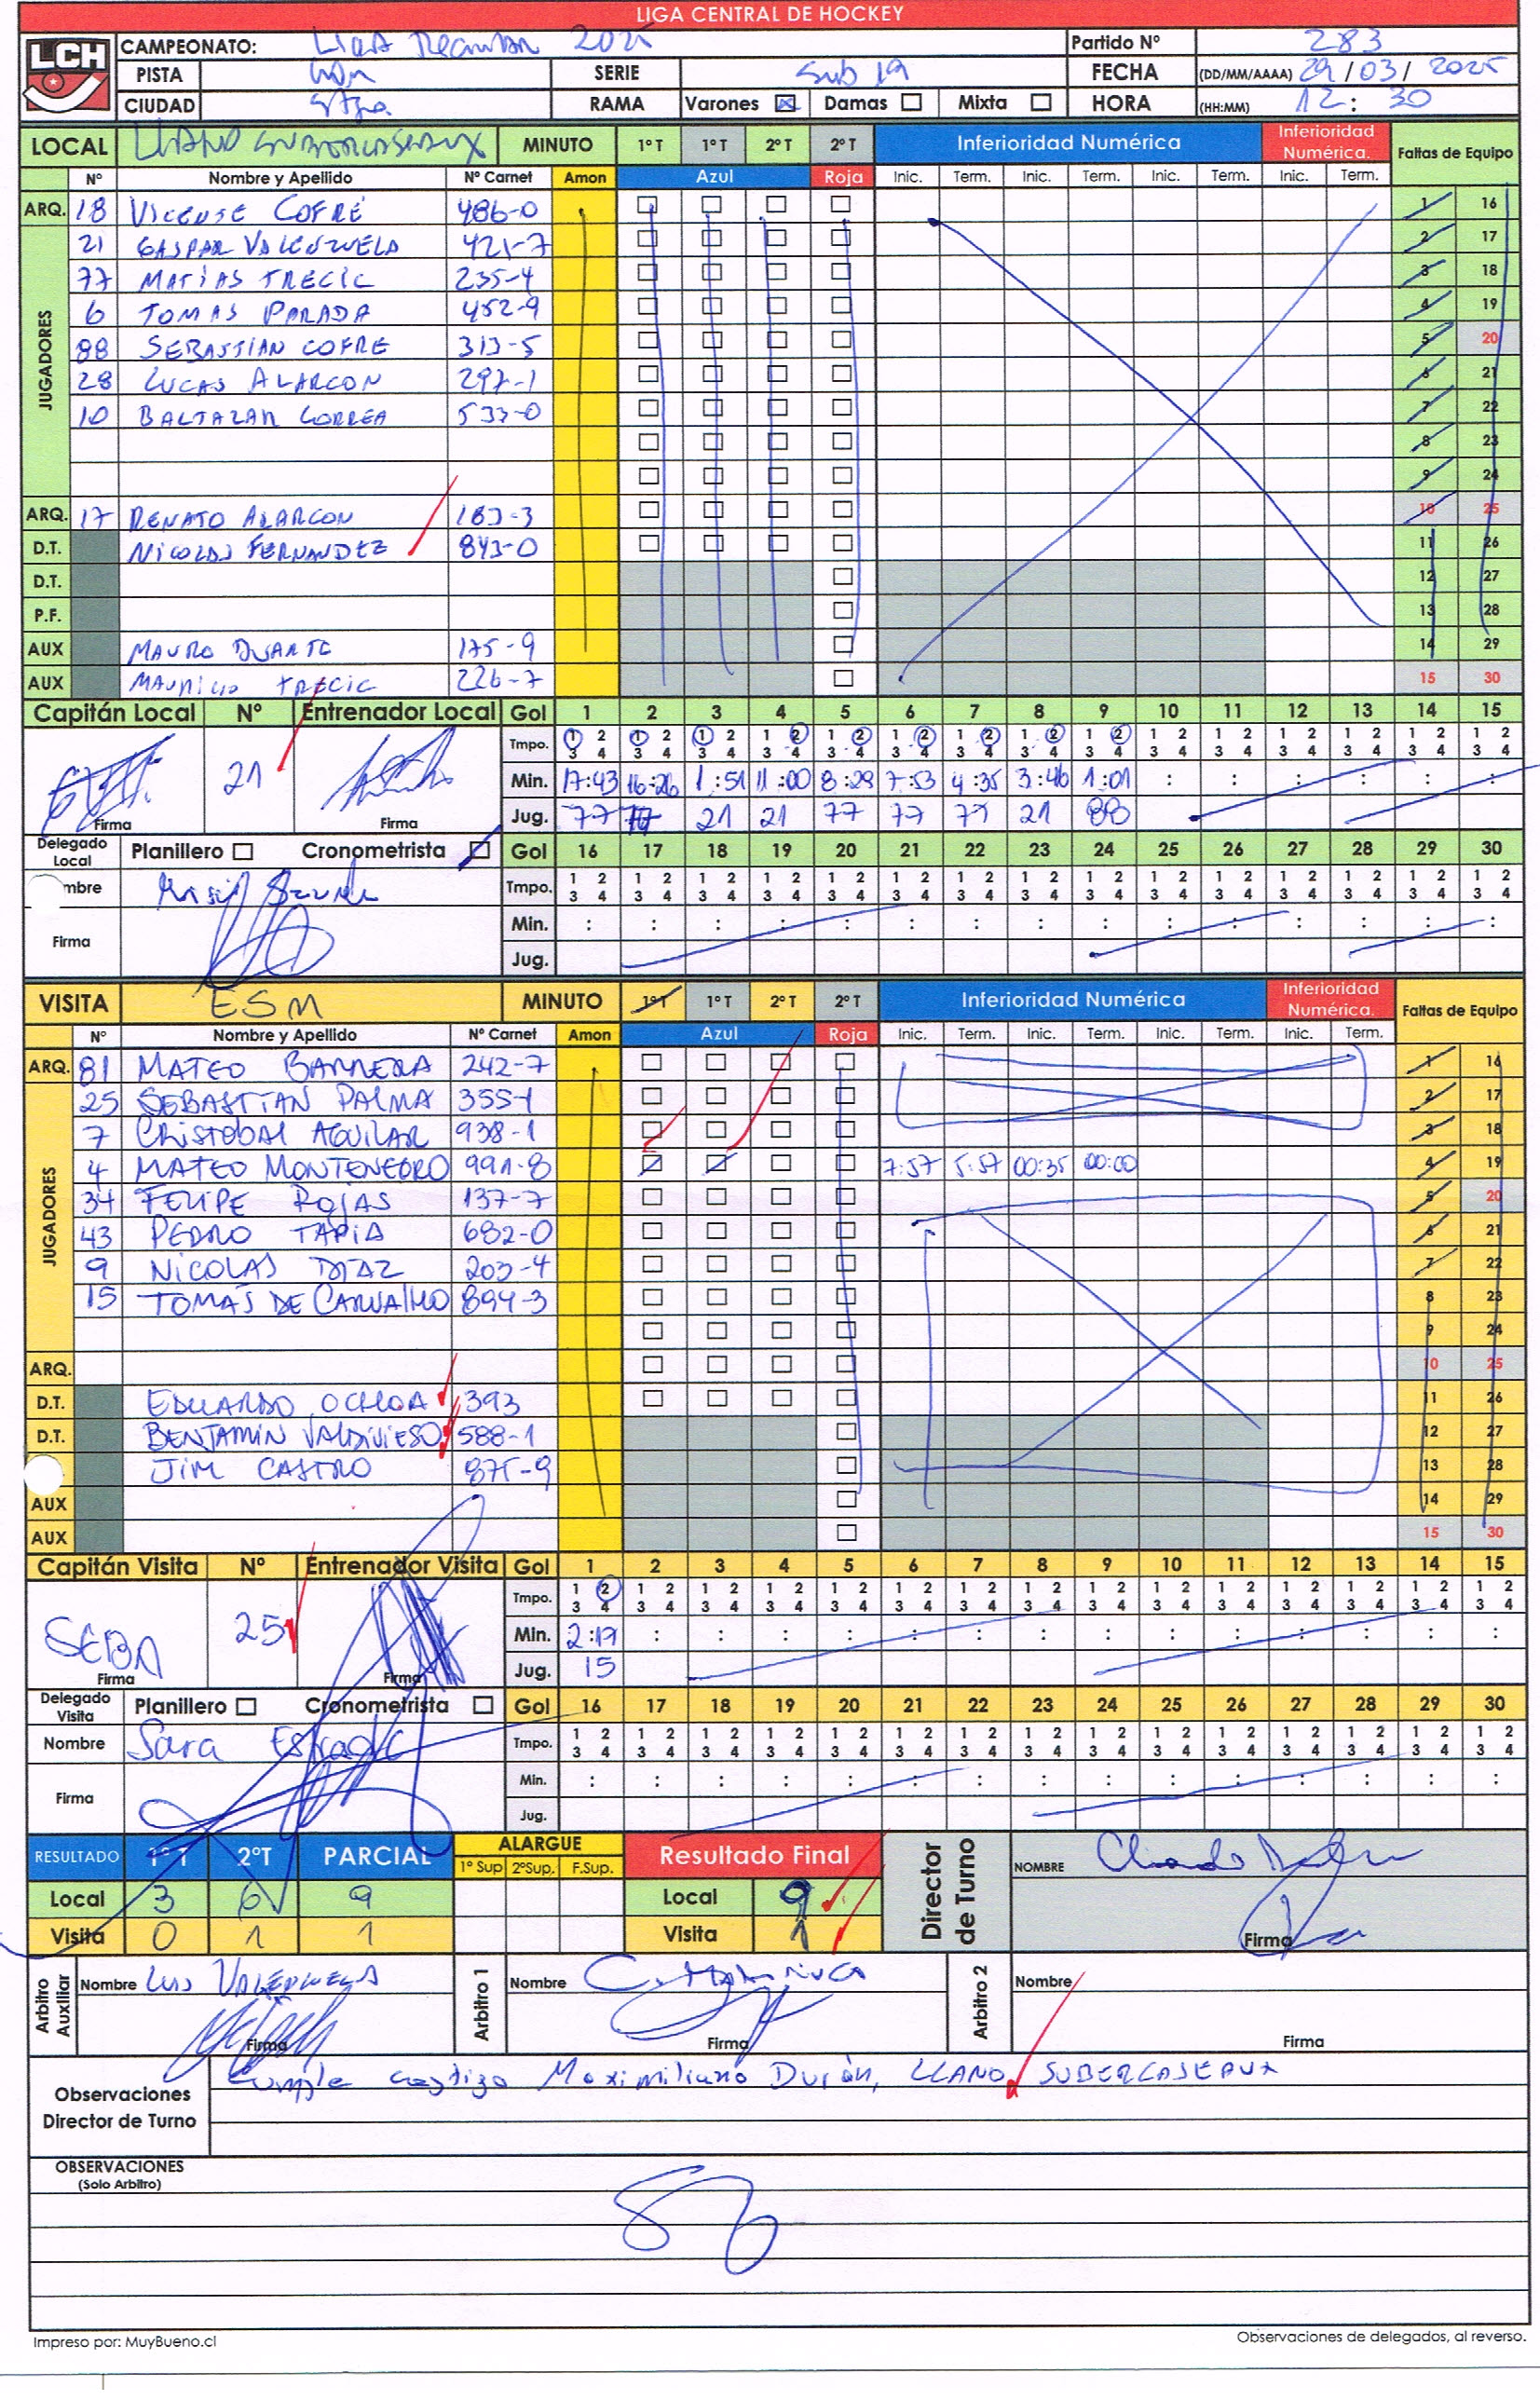 LIGA CENTRAL DE HOCKEY
LCH
CAMPEONATO: Liga 2025 Partido Nº 283
PISTA SERIE Sub 19 FECHA (DD/MM/AAAA) 29/03/2025
CIUDAD Stgo. RAMA Varones Damas Mixta HORA (HH:MM) 12:30
LOCAL LLANO SUBERCASEAUX MINUTO 1º T 1º T 2º T 2º T Inferioridad Numérica Inferioridad Numérica. Faltas de Equipo
Nº Nombre y Apellido Nº Carnet Amon Azul Roja Inic. Term. Inic. Term. Inic. Term. Inic. Term.
JUGADORES
ARQ. 18 VICENSE COFRÉ 486-0 1 16
21 GASPAR VALENZUELA 421-7 2 17
77 MATÍAS TRECIC 235-4 3 18
6 TOMAS PARADA 452-9 4 19
88 SEBASTIAN COFRE 313-5 5 20
28 LUCAS ALARCON 297-1 6 21
10 BALTAZAR CORREA 533-0 7 22
8 23
9 24
ARQ. 17 RENATO ALARCON 183-3 10 25
D.T. NICOLAS FERNANDEZ 843-0 11 26
D.T. 12 27
P.F. 13 28
AUX MAURO DUARTE 175-9 14 29
AUX MAURICIO TRECIC 226-7 15 30
Capitán Local Nº Entrenador Local Gol 1 2 3 4 5 6 7 8 9 10 11 12 13 14 15
Tmpo. 1 2 3 4 1 2 3 4 1 2 3 4 1 2 3 4 1 2 3 4 1 2 3 4 1 2 3 4 1 2 3 4 1 2 3 4 1 2 3 4 1 2 3 4 1 2 3 4 1 2 3 4 1 2 3 4 1 2 3 4
21 Min. 17:43 16:26 1:51 11:00 8:29 7:53 4:35 3:46 1:01 : : : : : :
Firma Firma Jug. 77 77 21 21 77 77 77 21 88
Delegado Local Planillero Cronometrista Gol 16 17 18 19 20 21 22 23 24 25 26 27 28 29 30
mbre Tmpo. 1 2 3 4 1 2 3 4 1 2 3 4 1 2 3 4 1 2 3 4 1 2 3 4 1 2 3 4 1 2 3 4 1 2 3 4 1 2 3 4 1 2 3 4 1 2 3 4 1 2 3 4 1 2 3 4 1 2 3 4
Firma Min. : : : : : : : : : : : : : : :
Jug.
VISITA ESM MINUTO 1º T 1º T 2º T 2º T Inferioridad Numérica Inferioridad Numérica. Faltas de Equipo
Nº Nombre y Apellido Nº Carnet Amon Azul Roja Inic. Term. Inic. Term. Inic. Term. Inic. Term.
JUGADORES
ARQ. 81 MATEO BARRERA 242-7 1 16
25 SEBASTIAN PALMA 355-1 2 17
7 CRISTOBAL AGUILAR 938-1 3 18
4 MATEO MONTENEGRO 991-8 7:57 5:57 00:35 00:00 4 19
34 FELIPE ROJAS 137-7 5 20
43 PEDRO TAPIA 682-0 6 21
9 NICOLAS DIAZ 203-4 7 22
15 TOMÁS DE CARVALHO 894-3 8 23
9 24
ARQ. 10 25
D.T. EDUARDO OCHOA 393 11 26
D.T. BENJAMIN VALDIVIESO 588-1 12 27
JIM CASTRO 875-9 13 28
AUX 14 29
AUX 15 30
Capitán Visita Nº Entrenador Visita Gol 1 2 3 4 5 6 7 8 9 10 11 12 13 14 15
Tmpo. 1 2 3 4 1 2 3 4 1 2 3 4 1 2 3 4 1 2 3 4 1 2 3 4 1 2 3 4 1 2 3 4 1 2 3 4 1 2 3 4 1 2 3 4 1 2 3 4 1 2 3 4 1 2 3 4 1 2 3 4
SEBA 25 Min. 2:19 : : : : : : : : : : : : : :
Firma Firma Jug. 15
Delegado Visita Planillero Cronometrista Gol 16 17 18 19 20 21 22 23 24 25 26 27 28 29 30
Nombre Sara Estrada Tmpo. 1 2 3 4 1 2 3 4 1 2 3 4 1 2 3 4 1 2 3 4 1 2 3 4 1 2 3 4 1 2 3 4 1 2 3 4 1 2 3 4 1 2 3 4 1 2 3 4 1 2 3 4 1 2 3 4 1 2 3 4
Firma Min. : : : : : : : : : : : : : : :
Jug.
RESULTADO 1º T 2ºT PARCIAL ALARGUE 1º Sup 2ºSup. F.Sup. Resultado Final Director de Turno NOMBRE
Local 3 6 9 Local 9
Visita 0 1 1 Visita 1 Firma
Arbitro Auxiliar Nombre LUIS VALENZUELA Arbitro 1 Nombre Arbitro 2 Nombre
Firma Firma Firma
Observaciones Director de Turno Cumple castigo Maximiliano Durán, LLANO SUBERCASEAUX
OBSERVACIONES
(Solo Arbitro)
Impreso por: MuyBueno.cl Observaciones de delegados, al reverso.